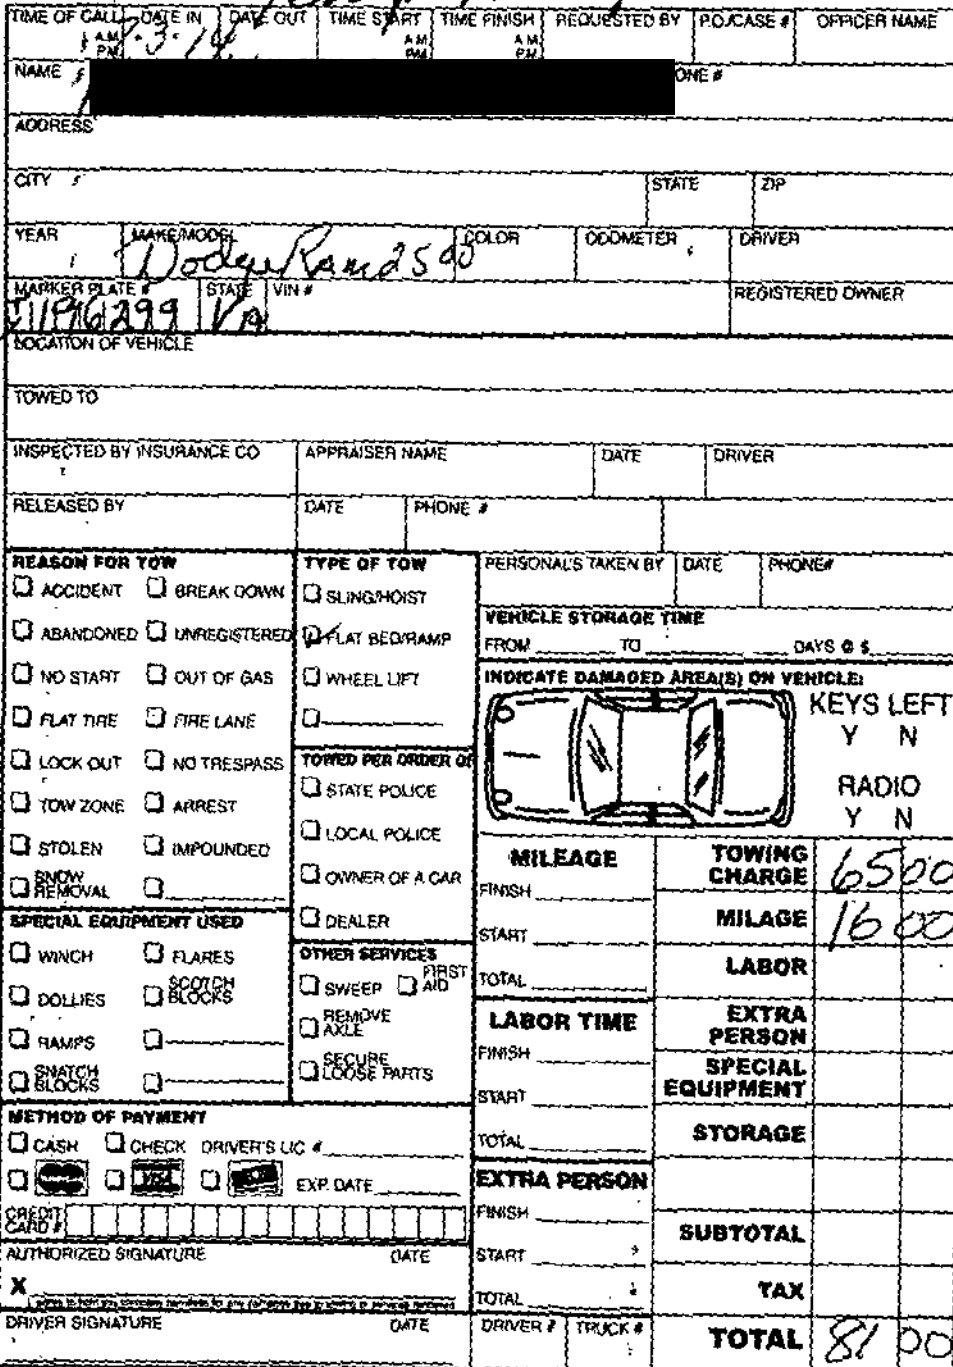 TIME OF CALL DATE IN DATE OUT TIME START TIME FINISH REQUESTED BY P.O./CASE # OFFICER NAME
A.M. A.M. A.M.
P.M. P.M. P.M.
NAME ONE #
ADDRESS
CITY STATE ZIP
YEAR MAKE/MODEL COLOR ODOMETER DRIVER
Dodge Ram 2500
MARKER PLATE # STATE VIN # REGISTERED OWNER
VA
LOCATION OF VEHICLE
TOWED TO
INSPECTED BY INSURANCE CO APPRAISER NAME DATE DRIVER
RELEASED BY DATE PHONE #
REASON FOR TOW
ACCIDENT BREAK DOWN
ABANDONED UNREGISTERED
NO START OUT OF GAS
FLAT TIRE FIRE LANE
LOCK OUT NO TRESPASS
TOW ZONE ARREST
STOLEN IMPOUNDED
SNOW REMOVAL
SPECIAL EQUIPMENT USED
WINCH FLARES
DOLLIES SCOTCH BLOCKS
RAMPS
SNATCH BLOCKS
TYPE OF TOW
SLING/HOIST
FLAT BED/RAMP
WHEEL LIFT
TOWED PER ORDER OF
STATE POLICE
LOCAL POLICE
OWNER OF A CAR
DEALER
OTHER SERVICES
SWEEP FIRST AID
REMOVE AXLE
SECURE LOOSE PARTS
PERSONAL'S TAKEN BY DATE PHONE#
VEHICLE STORAGE TIME
FROM TO DAYS @ $
INDICATE DAMAGED AREA(S) ON VEHICLE:
KEYS LEFT
Y N
RADIO
Y N
MILEAGE
FINISH
START
TOTAL
LABOR TIME
FINISH
START
TOTAL
EXTRA PERSON
FINISH
START
TOTAL
TOWING CHARGE 65 00
MILAGE 16 00
LABOR
EXTRA PERSON
SPECIAL EQUIPMENT
STORAGE
SUBTOTAL
TAX
TOTAL 81 00
METHOD OF PAYMENT
CASH CHECK DRIVER'S LIC #
VISA EXP. DATE
CREDIT CARD #
AUTHORIZED SIGNATURE DATE
X
DRIVER SIGNATURE DATE DRIVER # TRUCK #